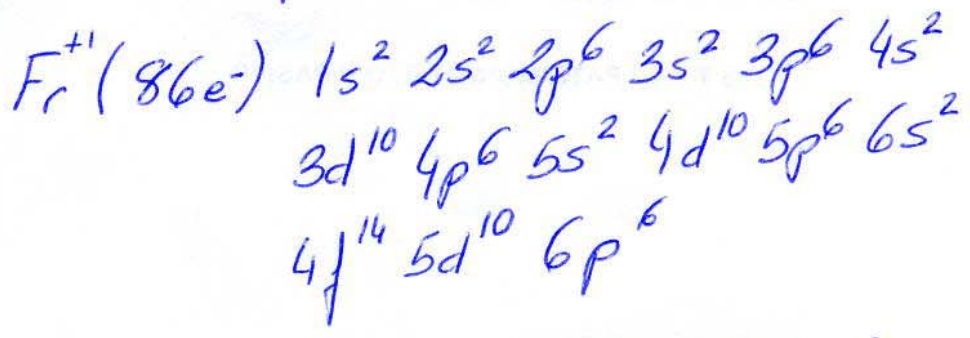 Fr⁺¹ (86e⁻) 1s² 2s² 2p⁶ 3s² 3p⁶ 4s²
3d¹⁰ 4p⁶ 5s² 4d¹⁰ 5p⁶ 6s²
4f¹⁴ 5d¹⁰ 6p⁶